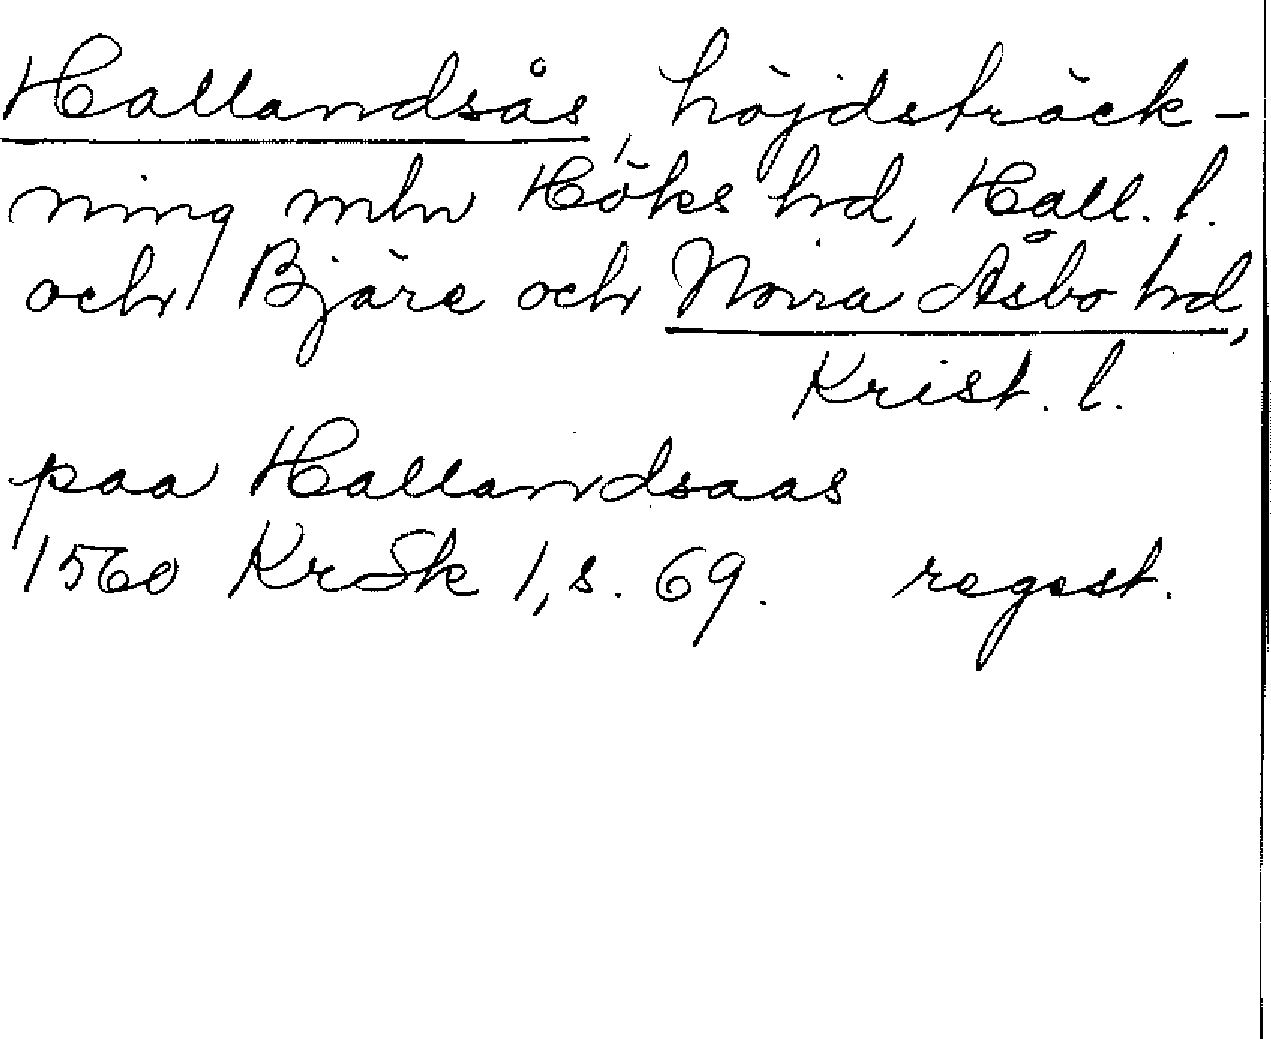 Hallandsås, höjdsträck-
ning mln Höks hd, Hall. l.
och Bjäre och Norra Åsbo hd,
Krist. l.
paa Hallandsaas
1560 KrSk 1, s. 69. regest.